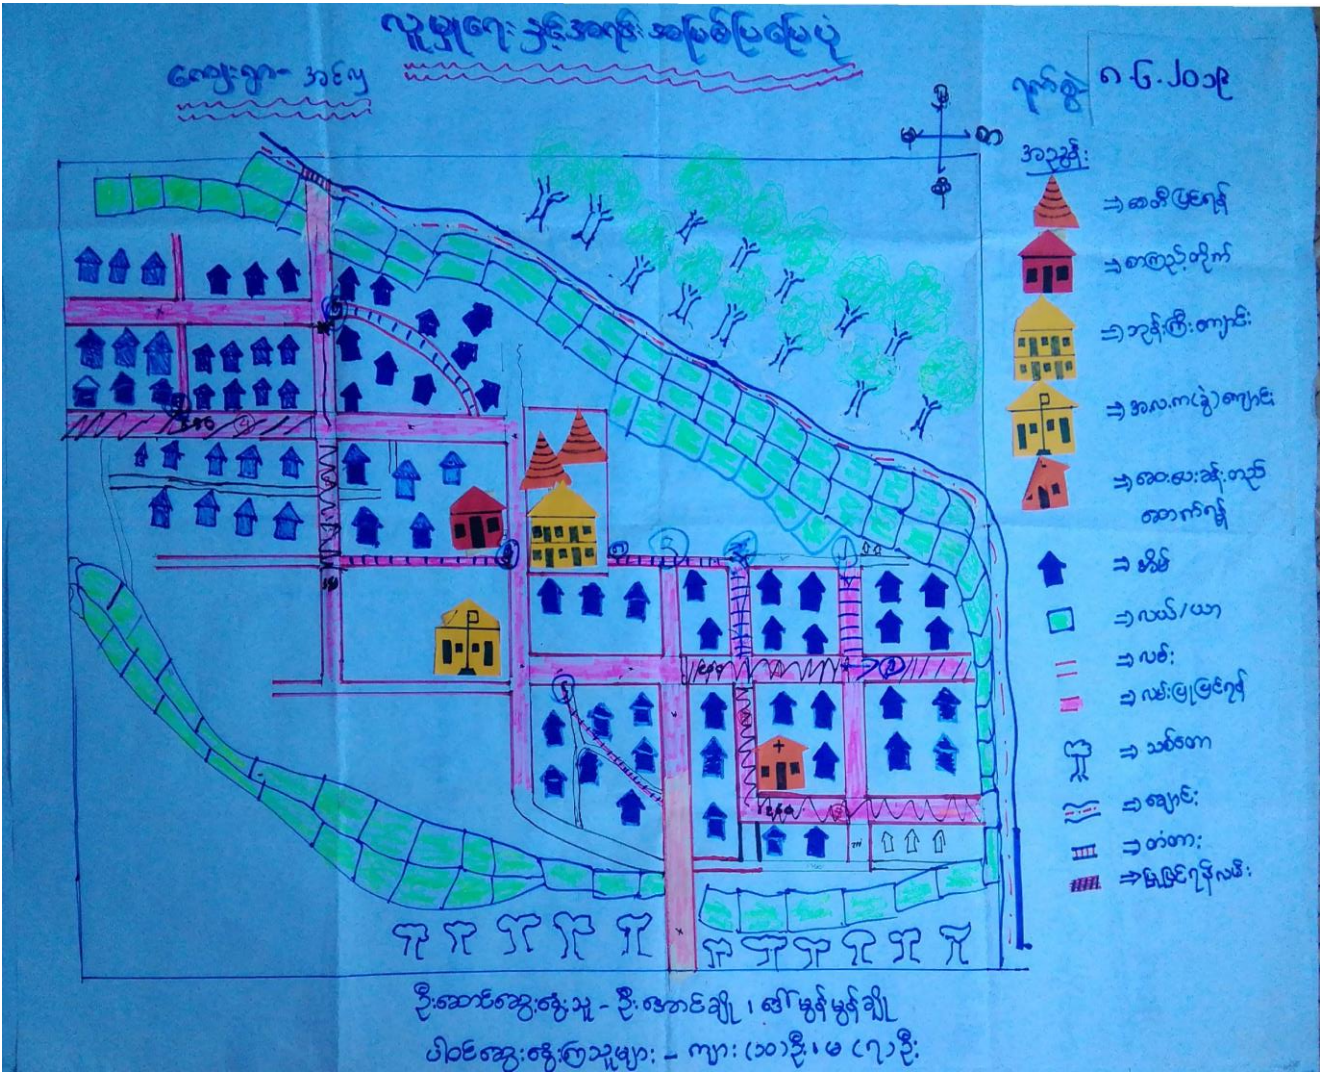 လူမှုရေး နှင့်အရင်းအမြစ်ပြမြေပုံ
ကျေးရွာ- အင်လှ
ရက်စွဲ ၈-၆-၂၀၁၉
အညွှန်း
⇒ စေတီပြင်ရန်
⇒ စာကြည့်တိုက်
⇒ ဘုန်းကြီးကျောင်း
⇒ အ.လ.က(ခွဲ)ကျောင်း
⇒ ဆေးပေးခန်းတည်
ဆောက်ရန်
⇒ အိမ်
⇒ လယ်/ယာ
⇒ လမ်း
⇒ လမ်းပြုပြင်ရန်
⇒ သစ်တော
⇒ ချောင်း
⇒ တံတား
⇒ ပြုပြင်ရန်လမ်း
ဦးဆောင်ဆွေးနွေးသူ - ဦးအောင်ချို ၊ ဒေါ်မွန်မွန်ချို
ပါဝင်ဆွေးနွေးကြသူများ - ကျား (၁၀) ဦး ၊ မ (၇) ဦး